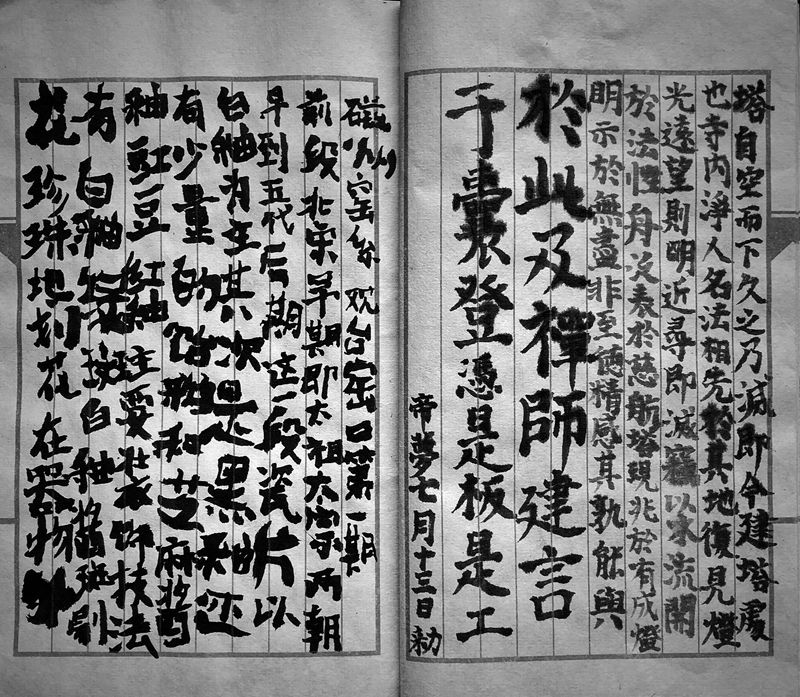 塔自空而下久之乃滅即今建塔處
也寺內淨人名法相先於其地復見燈
光遠望則明近尋即滅竊以水流開
於法性舟泛表於慈航塔現兆於有成燈
明示於無盡非至德精感其孰能與
於此及禪師建言
于囊登憑是板是工
帝夢七月十三日勅
磁州窑系观台窑口第一期
前段北宋早期即太祖太宗两朝
早到五代后期这一段瓷片以
白釉为主其次是黑釉还
有少量的饴釉和芝麻酱
釉豇豆红釉主要装饰技法
有白釉绿斑白釉酱斑剔
花珍珠地划花在器物